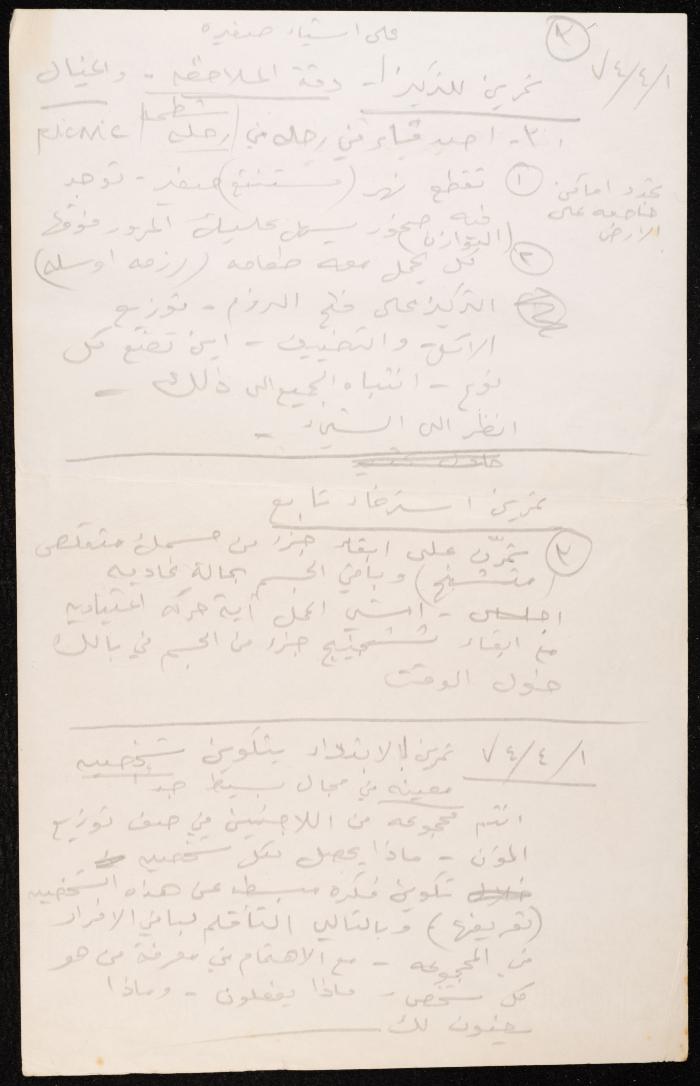 على اشياء صغيرة
٣
٧٤/٤/١
تمرين للتركيز - دقة الملاحظه - والخيال
٣٠ - اصدقاء في رحله في رحلة شطحة picnic
① تقطع نهر (مستنقع) صغير - توجد
تحدد اماكن خاصه على الارض
فيه صخور يسهل عليك المرور فوقها
(التوازن)
② كل يحمل معه طعامه (رزمه او سله)
التركيز على فتح الرزم - توزيع
الاكل - والتضييف - اين تضع كل
نوع - انتباه الجميع الى ذلك -
انظر الى الشيء -
تمرين استرخاء تابع
③ تمرّن على ابقاء جزء من جسمك متقلص
(متشنج) وباقي الجسم بحالة عاديه
اجلس - امشي اعمل أية حركه اعتياديه
مع ابقاء تشنيج جزء من الجسم في بالك
طول الوقت
٧٤/٤/١ تمرين الابتداء بتكوين شخصيه
معينه في مجال بسيط جدا
انتم مجموعه من اللاجئين في صف توزيع
المؤن - ماذا يحصل لكل شخصيه
تكوين فكره مبسطه عن هذه الشخصيه
(تعريفها) وبالتالي التأقلم لباقي الافراد
في المجموعه - مع الاهتمام في معرفة من هو
كل شخص - ماذا يفعلون - وماذا
يعنون لك